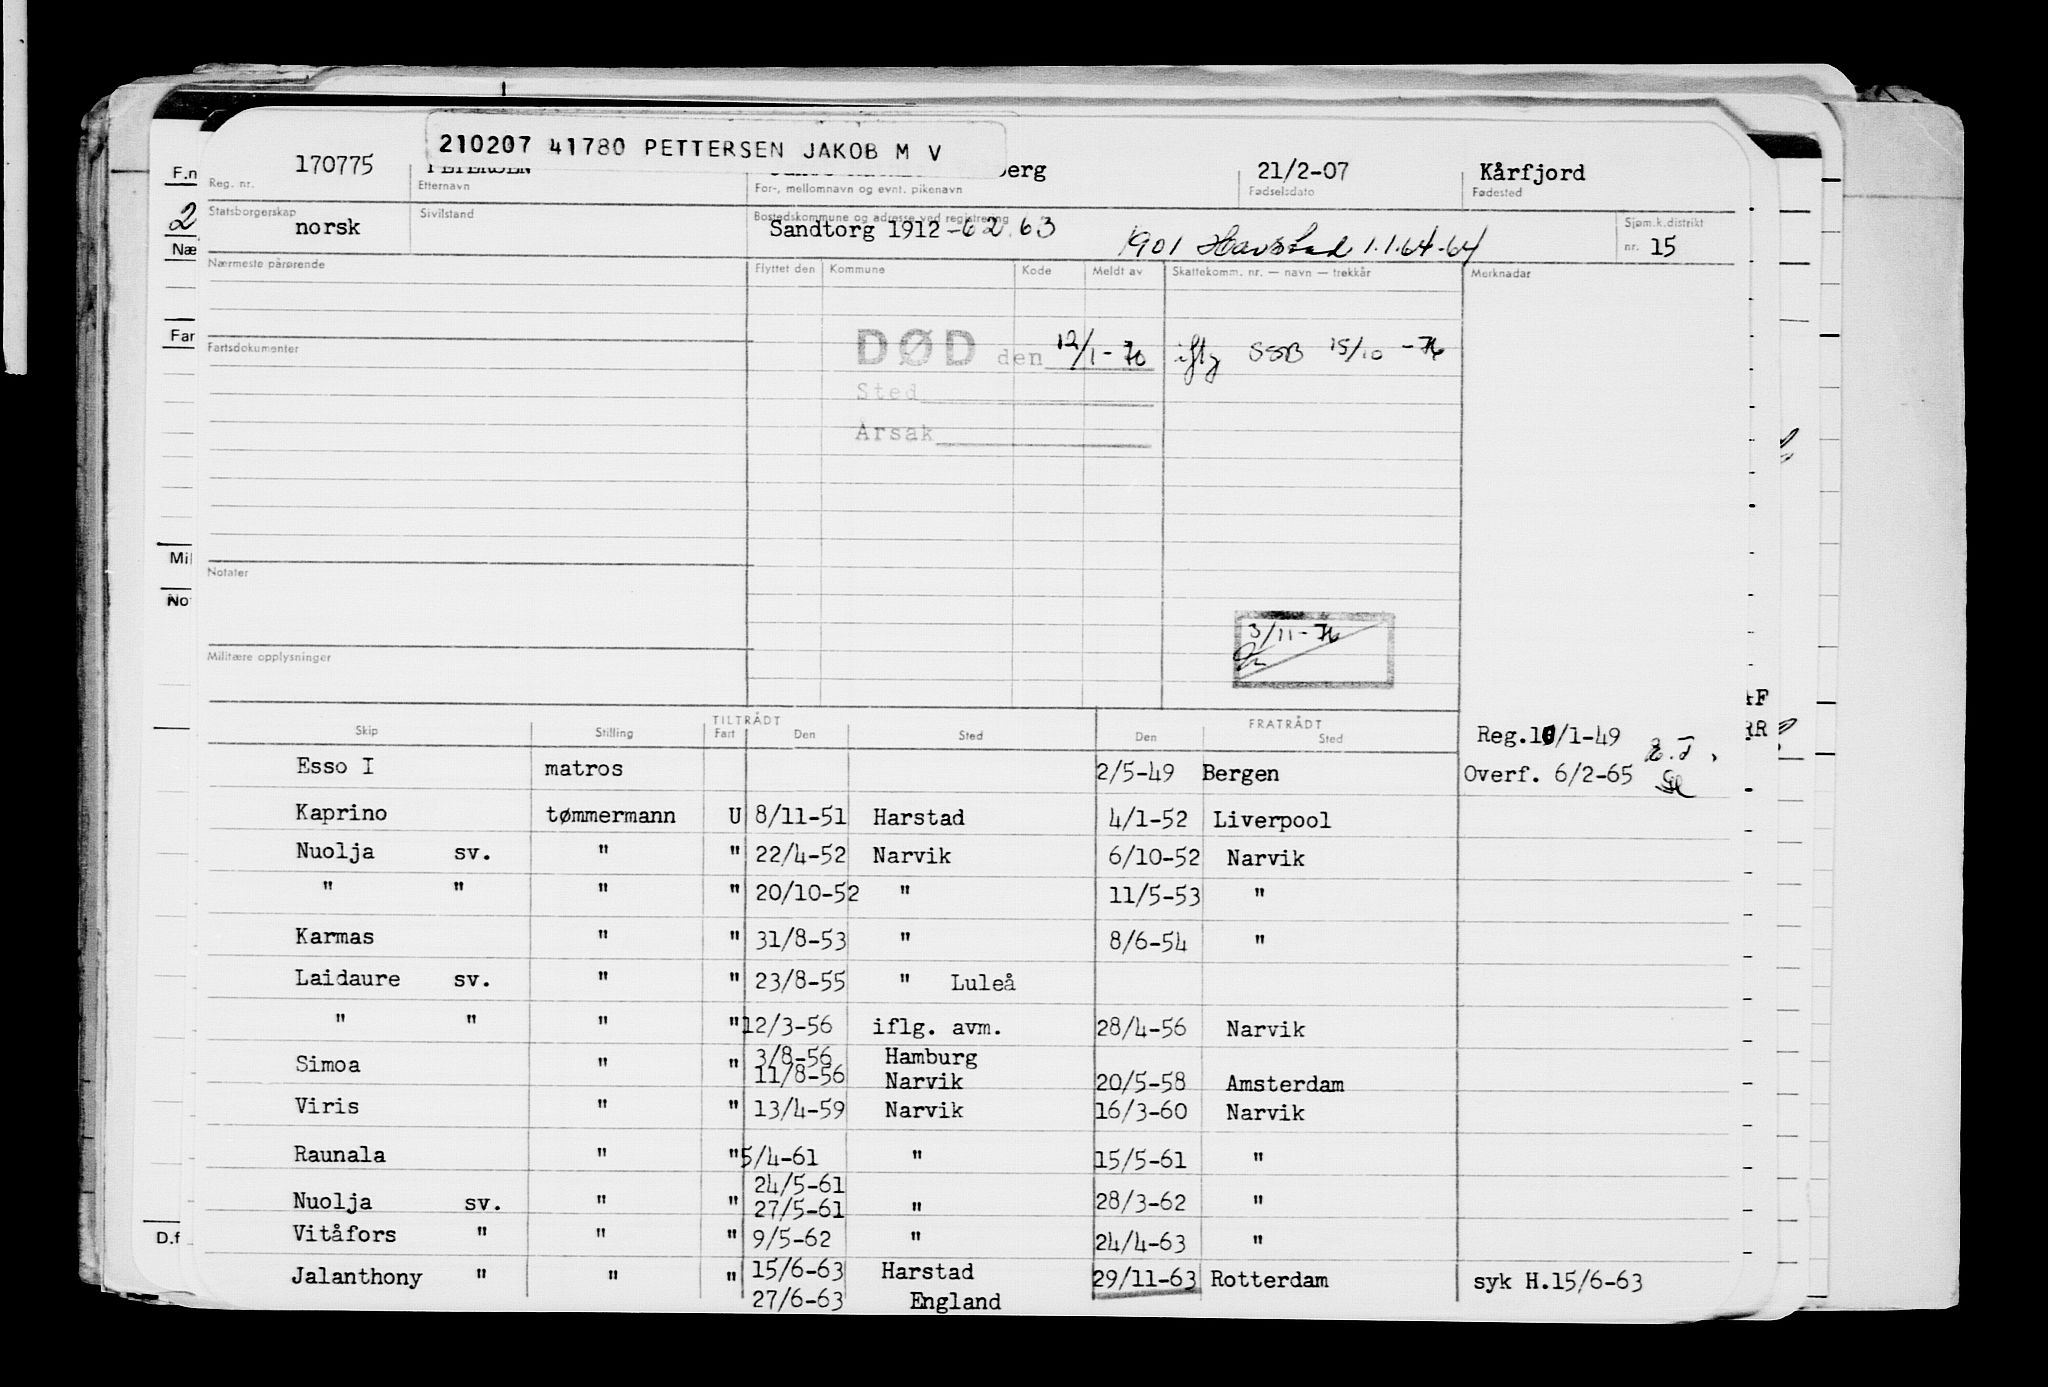 210207 41780 PETTERSEN JAKOB M V
170775 PETERSEN berg 21/2-07 Kårfjord
Reg. nr. Etternavn For-, mellomnavn og evnt. pikenavn Fødselsdato Fødested
Statsborgerskap Sivilstand Bostedskommune og adresse ved registrering Sjøm.k.distrikt
norsk Sandtorg 1912 -62.63 1901 Harstad 1.1.64-64 nr. 15
Nærmeste pårørende Flyttet den Kommune Kode Meldt av Skattekomm. nr. — navn — trekkår Merknader
Fartsdokumenter DØD den 12/1-70 iflg SSB 15/10 -76
Sted
Årsak
Notater
3/11-76
Militære opplysninger
TILTRÅDT FRATRÅDT
Skip Stilling Fart Den Sted Den Sted Reg.10/1-49
Esso I matros 2/5-49 Bergen Overf. 6/2-65
Kaprino tømmermann U 8/11-51 Harstad 4/1-52 Liverpool
Nuolja sv. " " 22/4-52 Narvik 6/10-52 Narvik
" " " " 20/10-52 " 11/5-53 "
Karmas " " 31/8-53 " 8/6-54 "
Laidaure sv. " " 23/8-55 " Luleå
" " " " 12/3-56 iflg. avm. 28/4-56 Narvik
3/8-56 Hamburg
Simoa " " 11/8-56 Narvik 20/5-58 Amsterdam
Viris " " 13/4-59 Narvik 16/3-60 Narvik
Raunala " " 5/4-61 " 15/5-61 "
24/5-61
Nuolja sv. " " 27/5-61 " 28/3-62 "
Vitåfors " " " 9/5-62 " 24/4-63 "
Jalanthony " " " 15/6-63 Harstad 29/11-63 Rotterdam syk H.15/6-63
27/6-63 England
F.n
2
Næ
Far
Mil
No
D.f